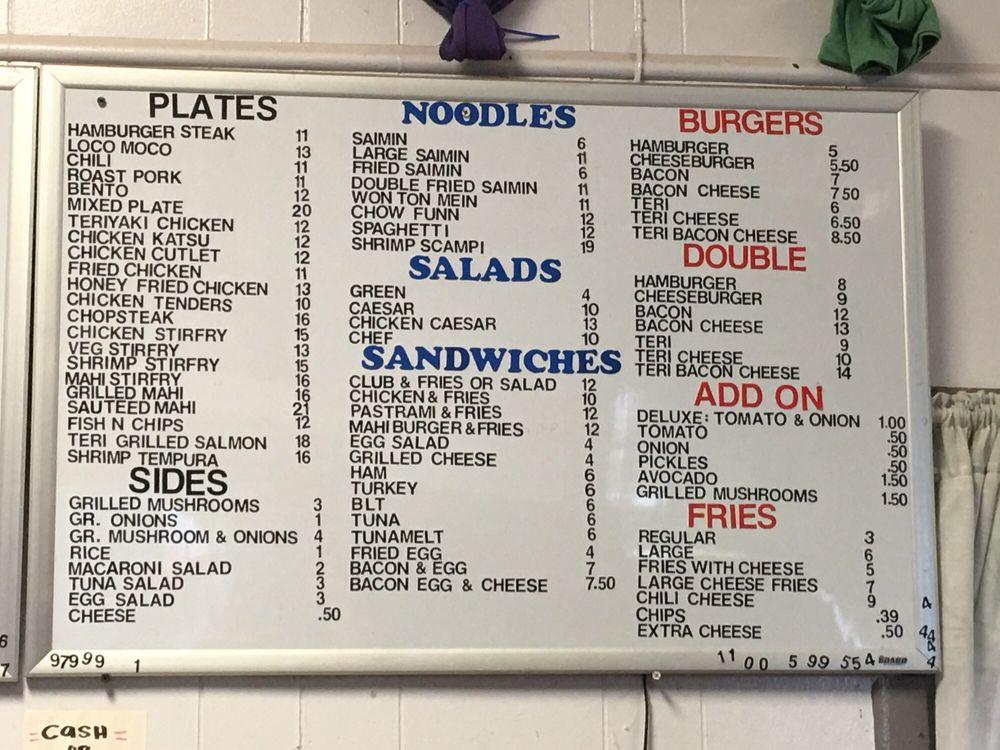 PLATES
HAMBURGER STEAK 11
LOCO MOCO 13
CHILI 11
ROAST PORK 11
BENTO 12
MIXED PLATE 20
TERIYAKI CHICKEN 12
CHICKEN KATSU 12
CHICKEN CUTLET 12
FRIED CHICKEN 11
HONEY FRIED CHICKEN 13
CHICKEN TENDERS 10
CHOPSTEAK 16
CHICKEN STIRFRY 15
VEG STIRFRY 13
SHRIMP STIRFRY 15
MAHI STIRFRY 16
GRILLED MAHI 16
SAUTEED MAHI 21
FISH N CHIPS 12
TERI GRILLED SALMON 18
SHRIMP TEMPURA 16
SIDES
GRILLED MUSHROOMS 3
GR. ONIONS 1
GR. MUSHROOM & ONIONS 4
RICE 1
MACARONI SALAD 2
TUNA SALAD 3
EGG SALAD 3
CHEESE .50
NOODLES
SAIMIN 6
LARGE SAIMIN 11
FRIED SAIMIN 6
DOUBLE FRIED SAIMIN 11
WON TON MEIN 11
CHOW FUNN 12
SPAGHETTI 12
SHRIMP SCAMPI 19
SALADS
GREEN 4
CAESAR 10
CHICKEN CAESAR 13
CHEF 10
SANDWICHES
CLUB & FRIES OR SALAD 12
CHICKEN & FRIES 10
PASTRAMI & FRIES 12
MAHI BURGER & FRIES 12
EGG SALAD 4
GRILLED CHEESE 4
HAM 6
TURKEY 6
BLT 6
TUNA 6
TUNAMELT 6
FRIED EGG 4
BACON & EGG 7
BACON EGG & CHEESE 7.50
BURGERS
HAMBURGER 5
CHEESEBURGER 5.50
BACON 7
BACON CHEESE 7 50
TERI 6
TERI CHEESE 6.50
TERI BACON CHEESE 8.50
DOUBLE
HAMBURGER 8
CHEESEBURGER 9
BACON 12
BACON CHEESE 13
TERI 9
TERI CHEESE 10
TERI BACON CHEESE 14
ADD ON
DELUXE: TOMATO & ONION 1.00
TOMATO .50
ONION .50
PICKLES .50
AVOCADO 1.50
GRILLED MUSHROOMS 1.50
FRIES
REGULAR 3
LARGE 6
FRIES WITH CHEESE 5
LARGE CHEESE FRIES 7
CHILI CHEESE 9
CHIPS .39
EXTRA CHEESE .50
4
44
4
97999 1 11 00 5 99 55 4 4
6
7
CASH